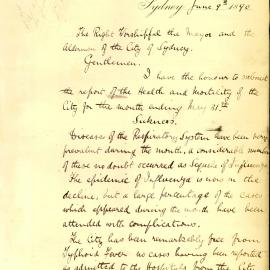 Sydney June 9th 1890
The Right Worshipful the Mayor and the
Aldermen of the City of Sydney.
Gentlemen.
I have the honour to submit
the report of the Health and Mortality of the
City for the month ending May 31st
Sickness.
Diseases of the Respiratory System have been very
prevalent during the month, a considerable number
of these no doubt occurred as Sequelae of Influenza
The epidemic of Influenza is now in the
decline, but a large percentage of the cases
which appeared during the month have been
attended with complications.
The City has been remarkably free from
Typhoid Fever no cases having been reported
as admitted to the Hospitals from the City